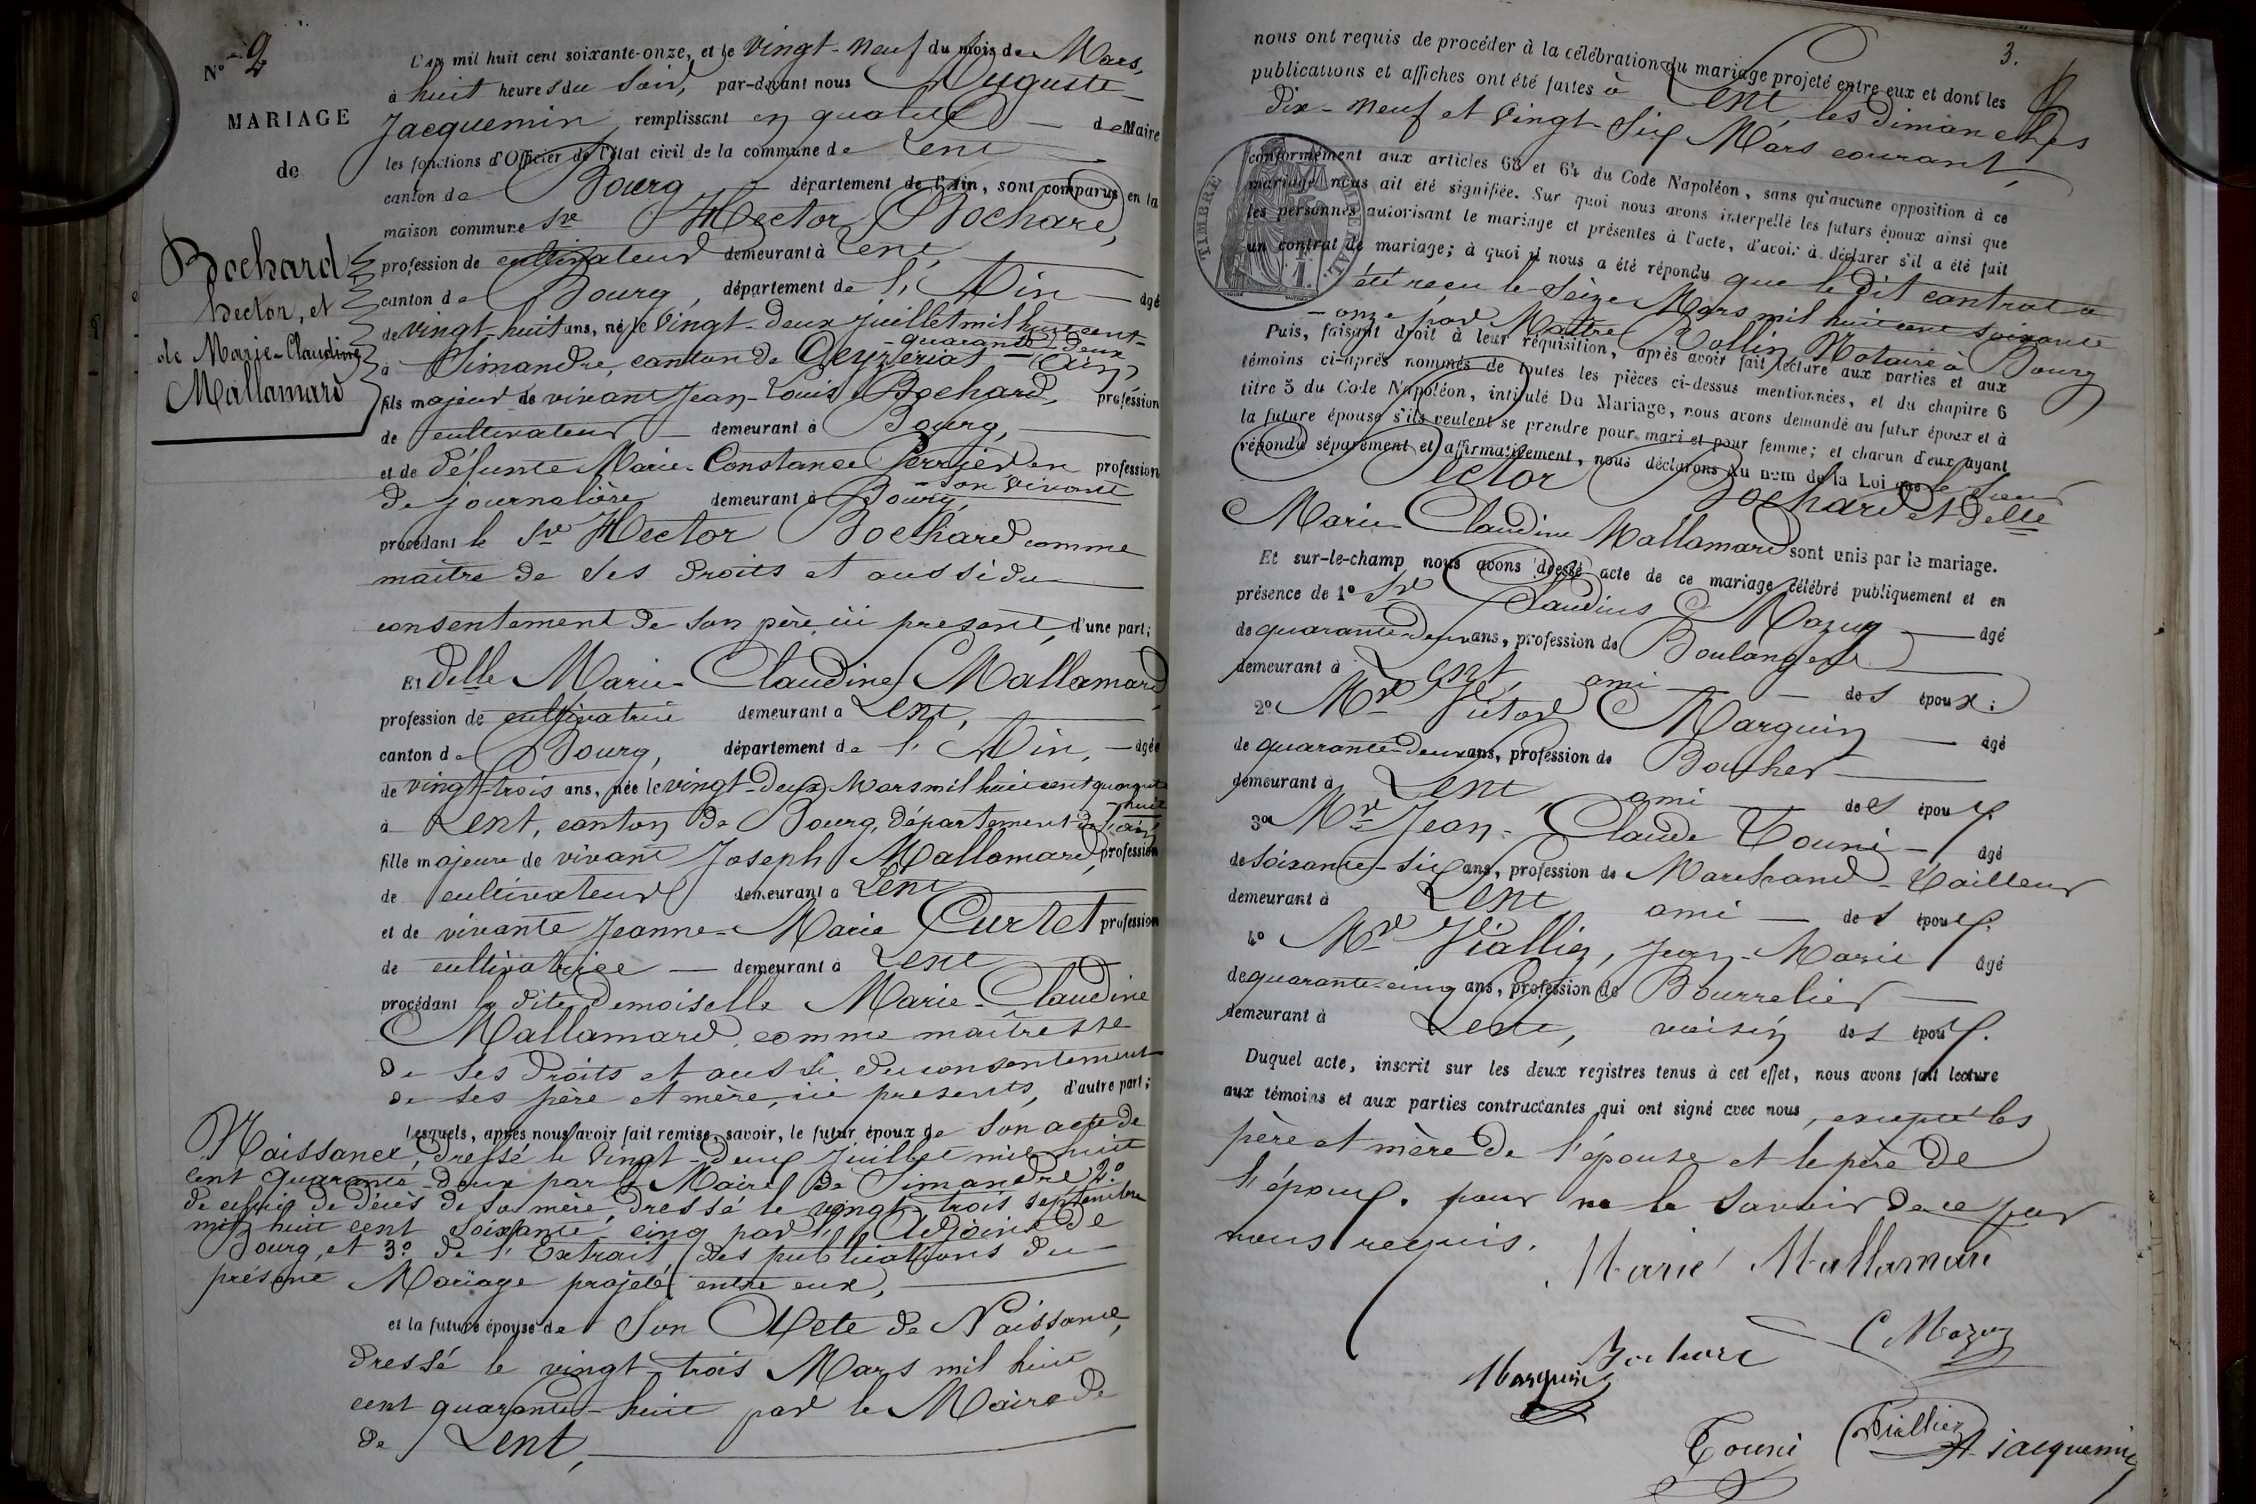 N° 2
MARIAGE
de
Bochard
hector, et
de Marie-Claudine
Mallamard
L'an mil huit cent soixante-onze, et le vingt-neuf du mois de Mars,
à huit heures du soir, par-devant nous Auguste
Jacquemin, remplissant en qualité de Maire
les fonctions d'Officier de l'état civil de la commune de Lent
canton de Bourg département de l'Ain, sont comparus en la
maison commune Sr Hector Bochard,
profession de cultivateur demeurant à Lent,
canton de Bourg, département de l'Ain âgé
de vingt-huit ans, né le vingt-deux juillet mil huit cent-
quarante-deux
à Simandre, canton de Ceyzériat (Ain)
fils majeur de vivant Jean-Louis Bochard, profession
de cultivateur demeurant à Bourg,
et de défunte Marie-Constance Perrier en profession
son vivant
de journalière demeurant à Bourg,
procédant le Sr Hector Bochard comme
maître de ses droits et aussi du
consentement de son père, ici présent, d'une part;
Et Delle Marie-Claudine Mallamard
profession de cultivatrice demeurant à Lent,
canton de Bourg, département de l'Ain, âgée
de vingt-trois ans, née le vingt-deux Mars mil huit cent quarante
huit
à Lent, canton de Bourg, département de l'ain
fille majeure de vivant Joseph Mallamard, profession
de cultivateur demeurant à Lent
et de vivante Jeanne-Marie Curtet profession
de cultivatrice demeurant à Lent
procédant la dite Demoiselle Marie-Claudine
Mallamard, comme maîtresse
de ses droits et aussi du consentement
de ses père et mère, ici présents, d'autre part;
Lesquels, après nous avoir fait remise, savoir, le futur époux de Son acte de
Naissance, dressé le vingt-deux Juillet mil huit
cent quarante-deux par le Maire de Simandre 2°
de celui de décès de sa mère, dressé le vingt trois septembre
mil huit cent soixante-cinq par l'Adjoint de
Bourg, et 3° de l'Extrait des publications du
présent Mariage projeté entre eux,
et la future épouse de Son Acte de Naissance,
dressé le vingt-trois Mars mil huit
cent quarante-huit par le Maire de
de Lent,
3.
nous ont requis de procéder à la célébration du mariage projeté entre eux et dont les
publications et affiches ont été faites à Lent, les dimanches
dix-neuf et vingt-six Mars courant,
conformément aux articles 63 et 64 du Code Napoléon, sans qu'aucune opposition à ce
mariage nous ait été signifiée. Sur quoi nous avons interpellé les futurs époux ainsi que
les personnes autorisant le mariage et présentes à l'acte, d'avoir à déclarer s'il a été fait
un contrat de mariage; à quoi il nous a été répondu que le dit contrat a
été reçu le seize Mars mil huit cent soixante
-onze par Maître Rollin Notaire à Bourg
TIMBRE
Puis, faisant droit à leur réquisition, après avoir fait lecture aux parties et aux
témoins ci-après nommés de toutes les pièces ci-dessus mentionnées, et du chapitre 6
titre 5 du Code Napoléon, intitulé Du Mariage, nous avons demandé au futur époux et à
la future épouse s'ils veulent se prendre pour mari et pour femme; et chacun d'eux ayant
répondu séparément et affirmativement, nous déclarons au nom de la Loi que le Sieur
Hector Bochard et Delle
Marie-Claudine Mallamard sont unis par le mariage.
Et sur-le-champ nous avons dressé acte de ce mariage célébré publiquement et en
présence de 1° Sr Claudius Mazuy âgé
de quarante-deux ans, profession de Boulanger
demeurant à Lent, ami des époux;
2° Mr Victor Marquin âgé
de quarante-deux ans, profession de Boucher
demeurant à Lent ami des époux.
3° Mr Jean-Claude Touni âgé
de soixante-six ans, profession de Marchand-Tailleur
demeurant à Lent ami des époux.
4° Mr Viallier, Jean-Marie âgé
de quarante-cinq ans, profession de Bourrelier
demeurant à Lent, voisin des époux.
Duquel acte, inscrit sur les deux registres tenus à cet effet, nous avons fait lecture
aux témoins et aux parties contractantes qui ont signé avec nous, excepté les
père et mère de l'épouse et le père de
l'époux. pour ne le savoir de ce par
nous requis.
Marie Mallamard
C Mazuy
Bochard
Marquin
Touni
Viallier
A Jacquemin